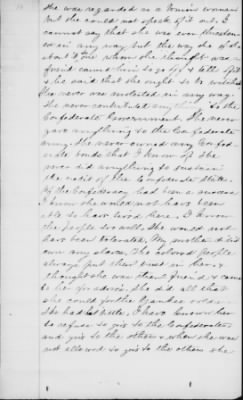 She was regarded as a Union woman
but she would not speak of it out. I
cannot say that she was ever threaten-
ed in any way but the way she
about one whom she thought was a
friend caused him to go off & kill
& he said that she ought to be
She never was molested in any way.
She never contributed anything to the
Confederate Government. She never
gave anything to the Confederate
army. She never owned any Confed-
erate bonds that I know of. She
never did anything to sustain
the credit of the Confederate States.
If the Confederacy had been a success
I know she would not have been
able to have lived here. I know
the people so well. She would not
have been tolerated. My mother did
own any slaves. The colored people
always put their trust in her &
thought she was their friend & came
to her for advice. She did all that
she could for the Yankee
She had but little. I have known her
to refuse to give to the Confederates
and give to the others & when she was
not allowed to give to the others she